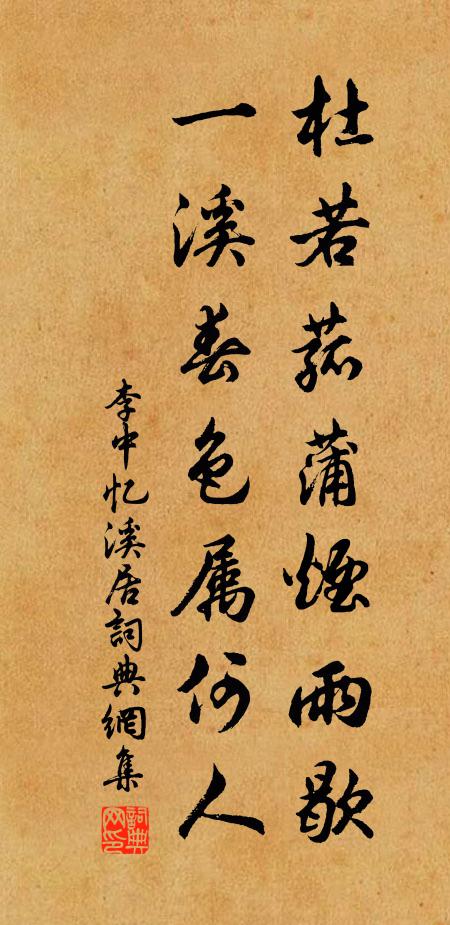 杜若菰蒲煙雨歇
一溪春色属何人
李中忆溪居詞典網集
詞典网印